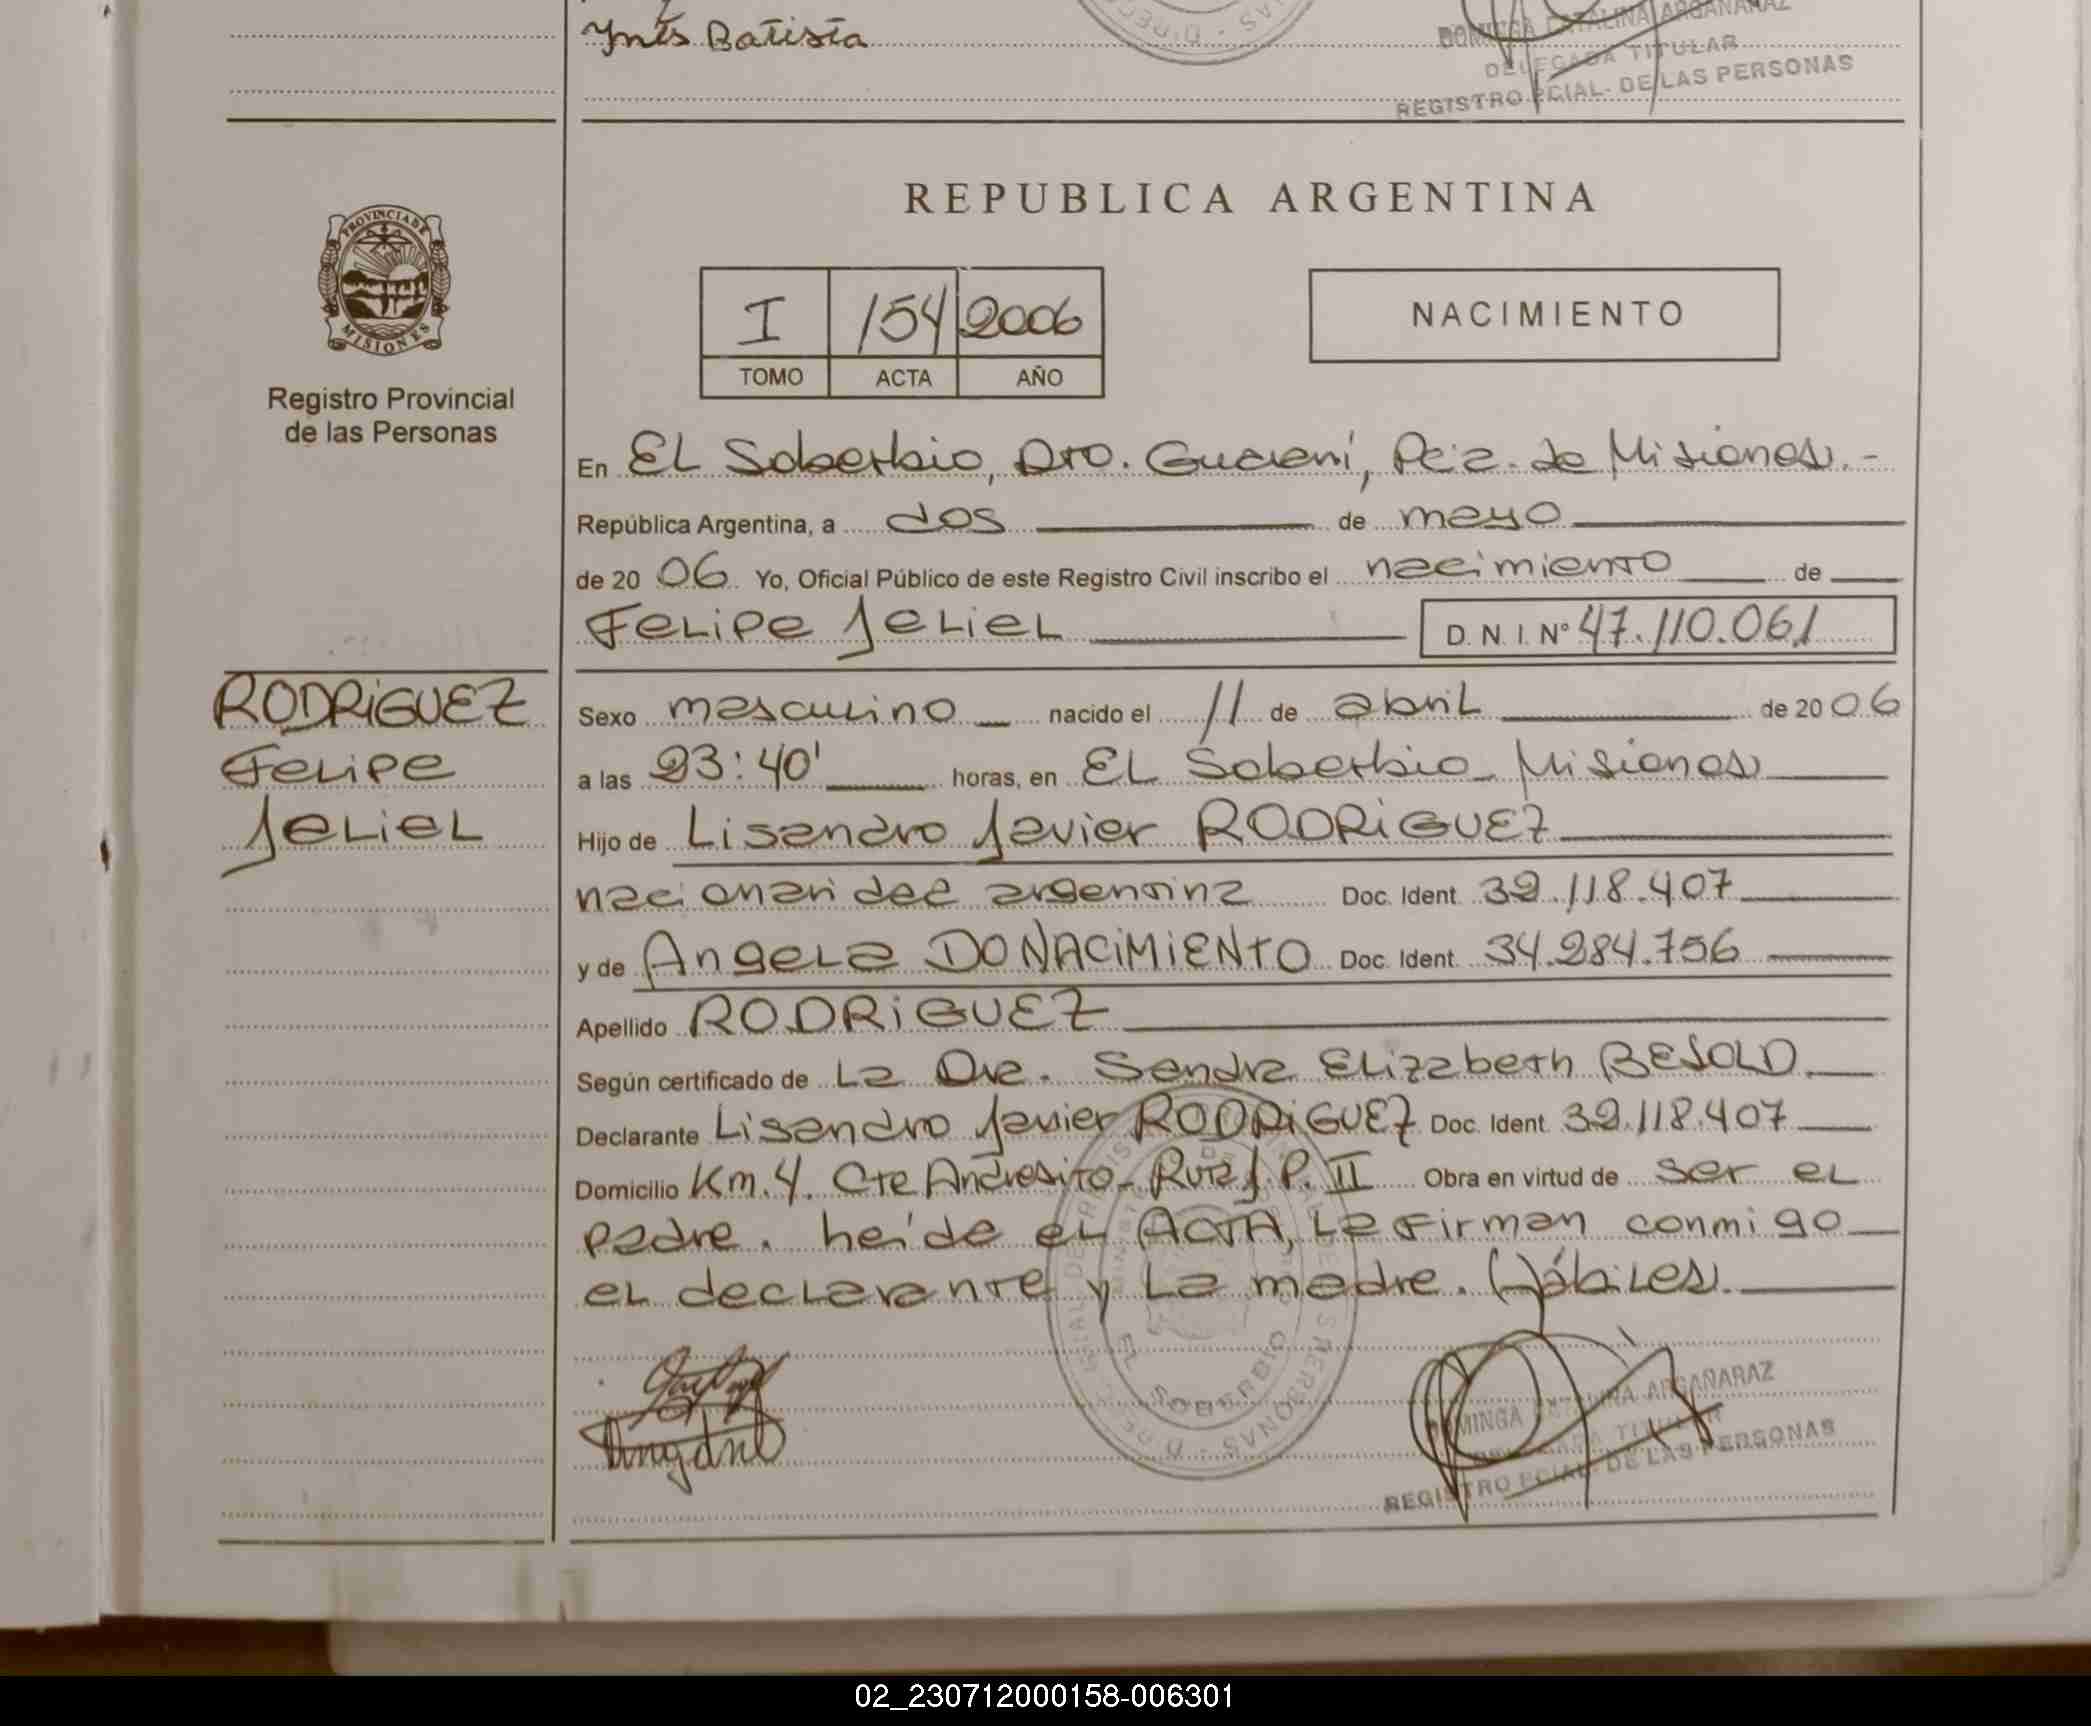 Ynés Batista
DOMINGA CATALINA ARGAÑARAZ
DELEGADA TITULAR
REGISTRO PCIAL. DE LAS PERSONAS
REPUBLICA ARGENTINA
PROVINCIA DE
MISIONES
Registro Provincial
de las Personas
I 154 2006
TOMO ACTA AÑO
NACIMIENTO
En EL Soberbio, Dto. Guaraní, Pcia. de Misiones.-
República Argentina, a dos de mayo
de 20 06 Yo, Oficial Público de este Registro Civil inscribo el nacimiento de
Felipe Jeliel D. N. I. Nº 47.110.061
RODRiGUEZ
Felipe
Jeliel
Sexo masculino nacido el 11 de abril de 20 06
a las 23:40' horas, en EL Soberbio Misiones
Hijo de Lisandro Javier RODRiGUEZ
nacionalidad argentina Doc. Ident. 32.118.407
y de Angela DO NACiMiENTO Doc. Ident. 34.284.756
Apellido RODRiGUEZ
Según certificado de La Dra. Sandra Elizabeth BESOLD
Declarante Lisandro Javier RODRiGUEZ Doc. Ident. 32.118.407
Domicilio Km. 4. Cte Andresito- Ruta J. P. II Obra en virtud de ser el
padre. heída el ACTA, La firman conmigo
el declarante y La madre. Hábiles.
EL SOBERBIO
DOMINGA CATALINA ARGAÑARAZ
DELEGADA TITULAR
REGISTRO PCIAL. DE LAS PERSONAS
02_230712000158-006301